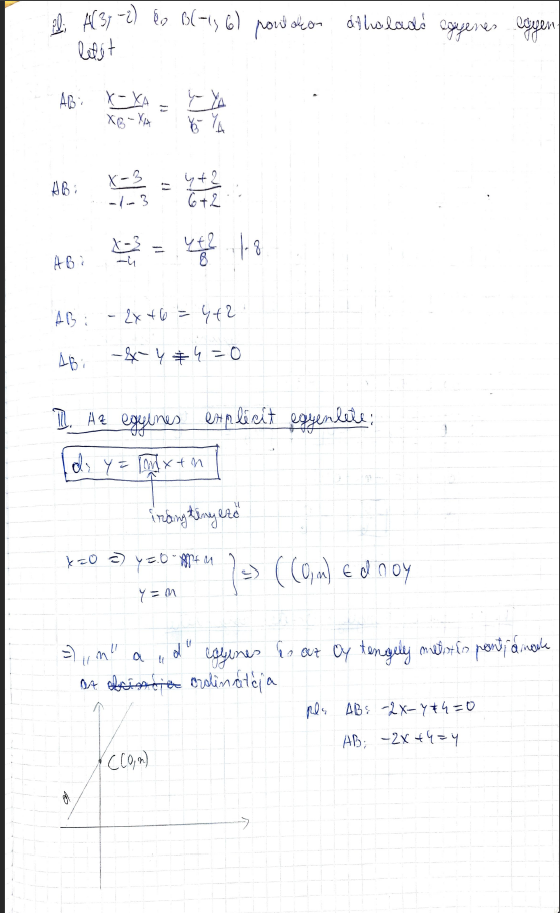 pl. A(3; -2) és B(-1; 6) pontokon áthaladó egyenes egyen-
letét
AB: (x - x_A)/(x_B - x_A) = (y - y_A)/(y_B - y_A)
AB: (x-3)/(-1-3) = (y+2)/(6+2)
AB: (x-3)/(-4) = (y+2)/8 |·8
AB: -2x+6 = y+2
AB: -2x-y+4=0
II. Az egyenes explicit egyenlete:
d: y = mx+n
iránytényező
x=0 => y=0·m+n
y=n
} => C(0,n) ∈ d∩Oy
=> „n" a „d" egyenes és az Oy tengely metszés pontjának
az ordinátája
pl: AB: -2x-y+4=0
AB: -2x+4=y
C(0,n)
d